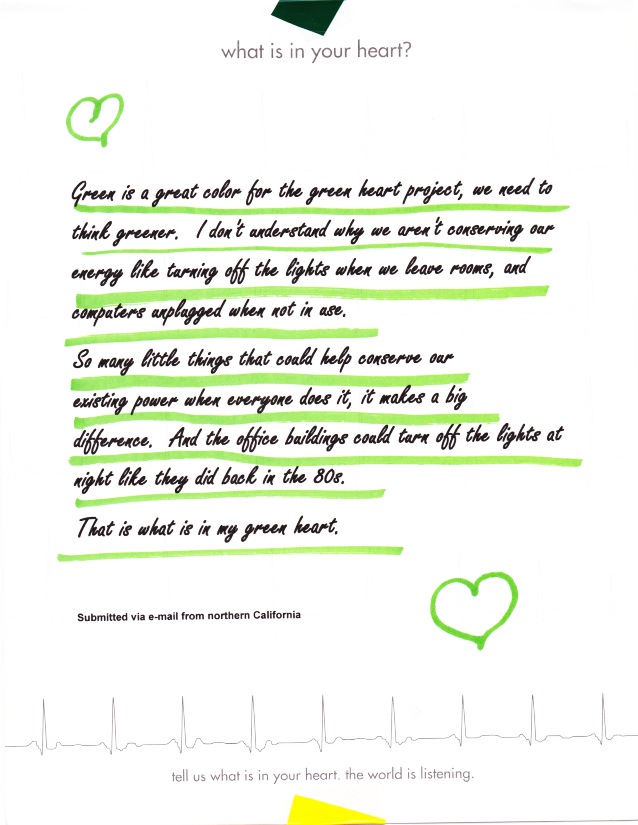 what is in your heart?
Green is a great color for the green heart project, we need to
think greener. I don't understand why we aren't conserving our
energy like turning off the lights when we leave rooms, and
computers unplugged when not in use.
So many little things that could help conserve our
existing power when everyone does it, it makes a big
difference. And the office buildings could turn off the lights at
night like they did back in the 80s.
That is what is in my green heart.
Submitted via e-mail from northern California
tell us what is in your heart. the world is listening.